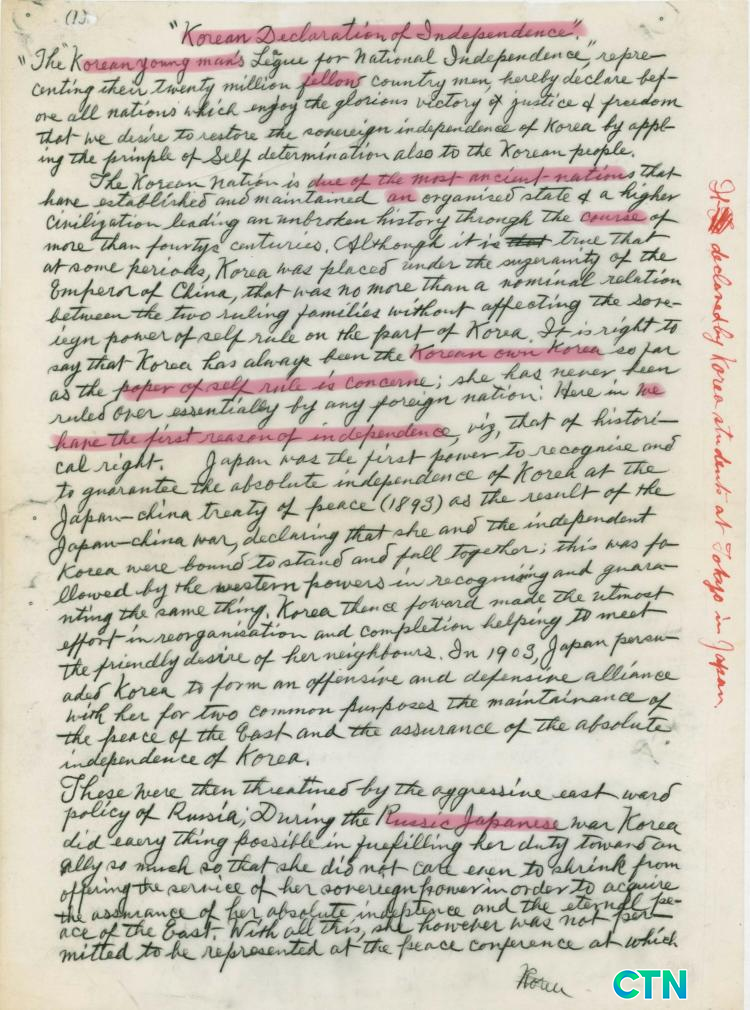 (1)
"Korean Declaration of Independence".
"The "Korean young man's Legue for National Independence", repre-
centing their twenty million fellow country men, hereby declare bef-
ore all nations which enjoy the glorious victory of justice & freedom
that we desire to restore the sovereign independence of Korea by appl-
ing the prinple of Self determination also to the Korean people.
The Korean Nation is due of the most ancient nations that
have established and maintained an organised state & a higher
civilization leading an unbroken history through the course of
more than fourtys centuries. Although it is that true that
at some periods, Korea was placed under the suzerainty of the
Emperor of China, that was no more than a nominal relation
between the two ruling families without affecting the sove-
iegn power of self rule on the part of Korea. It is right to
say that Korea has always been the Korean own Korea so far
as the poper of self rule is concerne; she has never been
ruled over essentially by any foreign nation: Here in we
have the first reason of independence, viz, that of histori-
cal right. Japan was the first power to recognise and
to guarantee the absolute independence of Korea at the
Japan-china treaty of peace (1893) as the result of the
Japan-china war, declaring that she and the independent
Korea were bound to stand and fall together; this was fo-
llowed by the western powers in recognising and guara-
nting the same thing. Korea thence foward made the utmost
effort in reorganisation and completion helping to meet
the friendly desire of her neighbours. In 1903, Japan persu-
aded Korea to form an offensive and defensive alliance
with her for two common purposes the maintainance of
the peace of the East and the assurance of the absolute
independence of Korea.
These were then threatined by the aggressive east ward
policy of Russia; During the Russic Japanese war Korea
did eaery thing possible in fuefilling her duty toward an
ally so much so that she did not care even to shrink from
offering the service of her sovereign power in order to acquire
the assurance of her absolute indeptence and the eternal pe-
ace of the East. With all this, she however was not per-
mitted to be represented at the peace conference at which
Korea
It declared by Korea students at Tokyo in Japan.
CTN